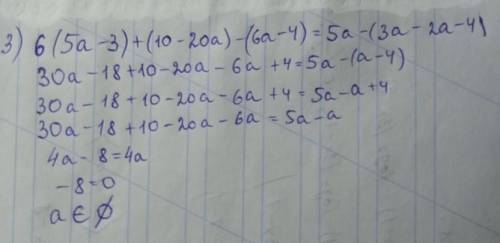 3) 6(5a-3)+(10-20a)-(6a-4)=5a-(3a-2a-4)
30a-18+10-20a-6a+4=5a-(a-4)
30a-18+10-20a-6a+4=5a-a+4
30a-18+10-20a-6a=5a-a
4a-8=4a
-8=0
a∈∅